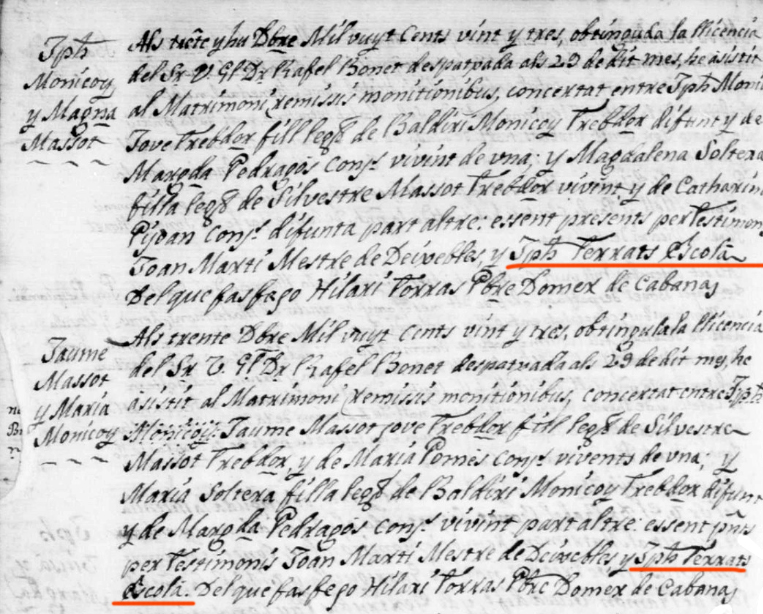 Jph
Monicoy
y Magna
Massot
Als trete y hu Dbre Mil vuyt Cents vint y tres, obtinguda la llicencia
del Sr V. Gl Dr Rafel Bonet despatxada als 29 de dit mes, he asistit
al Matrimoni, remissis monitionibus, concertat entre Jph Moni
Jove Trebdor fill legm de Baldiri Monicoy Trebdor difunt y de
Margda Pedragos Cons. vivint de vna; y Magdalena Soltera
filla legm de Silvestre Massot Trebdor vivent y de Catharin
Pijoan Cons. difunta part altre: essent presents per Testimon
Joan Marti Mestre de Deixebles, y Jph Terrats Escolà
Del que fas fe yo Hilari Torras Pbre Domer de Cabanas
Jaume
Massot
y Maria
Monicoy
Als trente Dbre Mil vuyt Cents vint y tres, obtinguda la llicencia
del Sr V. Gl Dr Rafel Bonet despatxada als 29 de dit mes, he
asistit al Matrimoni, remissis monitionibus, concertat entre Jph
Monicoy Jaume Massot jove Trebdor fill legm de Silvestre
Massot Trebdor, y de Maria Pomes Cons. vivents de vna; y
Maria Soltera filla legm de Baldiri Monicoy Trebdor difunt
y de Margda Pedragos Cons. vivint part altre: essent pnts
per Testimonis Joan Marti Mestre de Deixebles y Jph Terrats
Escolà. Del que fas fe yo Hilari Torras Pbre Domer de Cabanas